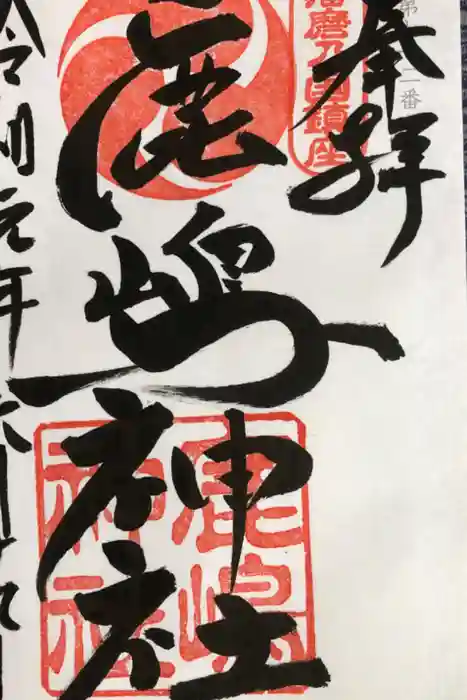 奉拝
第 二番
播磨乃国鎮座
鹿嶋神社
鹿嶋
神社
令和元年